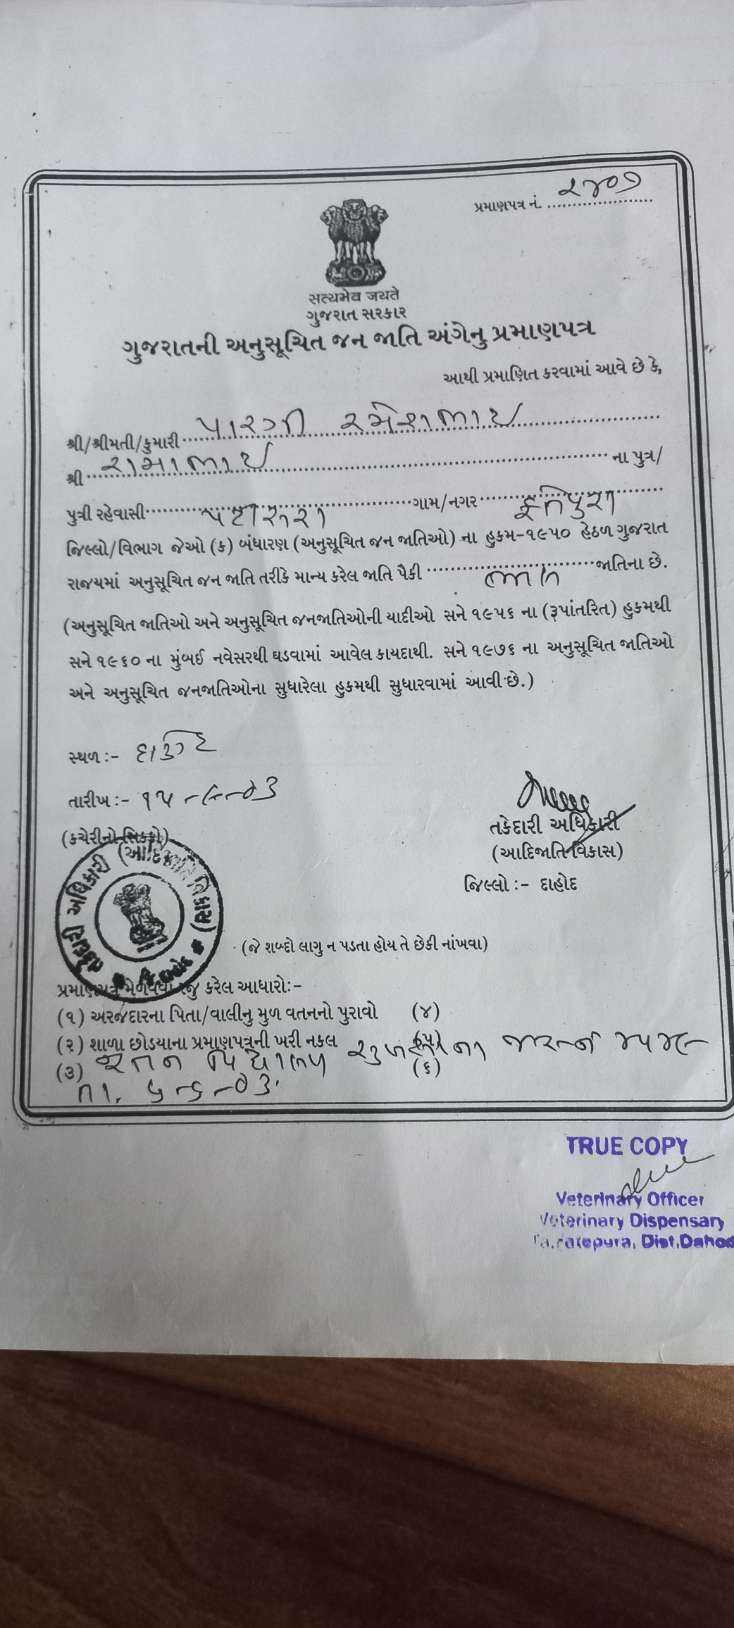 પ્રમાણપત્ર નં. ૨૪૦૭
સત્યમેવ જયતે
ગુજરાત સરકાર
ગુજરાતની અનુસૂચિત જન જાતિ અંગેનુ પ્રમાણપત્ર
આથી પ્રમાણિત કરવામાં આવે છે કે,
શ્રી/શ્રીમતી/કુમારી પારગી રમેશભાઈ
શ્રી રામાભાઈ ના પુત્ર/
પુત્રી રહેવાસી ગામ/નગર ફતેપુરા
જિલ્લો/વિભાગ જેઓ (ક) બંધારણ (અનુસૂચિત જન જાતિઓ) ના હુકમ-૧૯૫૦ હેઠળ ગુજરાત
રાજ્યમાં અનુસૂચિત જન જાતિ તરીકે માન્ય કરેલ જાતિ પૈકી જાતિના છે.
(અનુસૂચિત જાતિઓ અને અનુસૂચિત જનજાતિઓની યાદીઓ સને ૧૯૫૬ ના (રૂપાંતરિત) હુકમથી
સને ૧૯૬૦ ના મુંબઈ નવેસરથી ઘડવામાં આવેલ કાયદાથી. સને ૧૯૭૬ ના અનુસૂચિત જાતિઓ
અને અનુસૂચિત જનજાતિઓના સુધારેલા હુકમથી સુધારવામાં આવી છે.)
સ્થળ :- દાહોદ
તારીખ :- ૧૫-૯-૦૩
તકેદારી અધિકારી
(કચેરીનો સિક્કો)
(આદિજાતિ વિકાસ)
જિલ્લો :- દાહોદ
તકેદારી અધિકારી (આદિજાતિ વિકાસ)
(જે શબ્દો લાગુ ન પડતા હોય તે છેકી નાંખવા)
પ્રમાણપત્ર મેળવવા રજુ કરેલ આધારો:-
(૧) અરજદારના પિતા/વાલીનુ મુળ વતનનો પુરાવો (૪)
(૨) શાળા છોડયાના પ્રમાણપત્રની ખરી નકલ (૫)
(૩) રતન વિદ્યાલય સુખસરના (૬)
તા. ૫-૬-૦૩.
TRUE COPY
Veterinary Officer
Veterinary Dispensary
Ta. Fatepura, Dist. Dahod